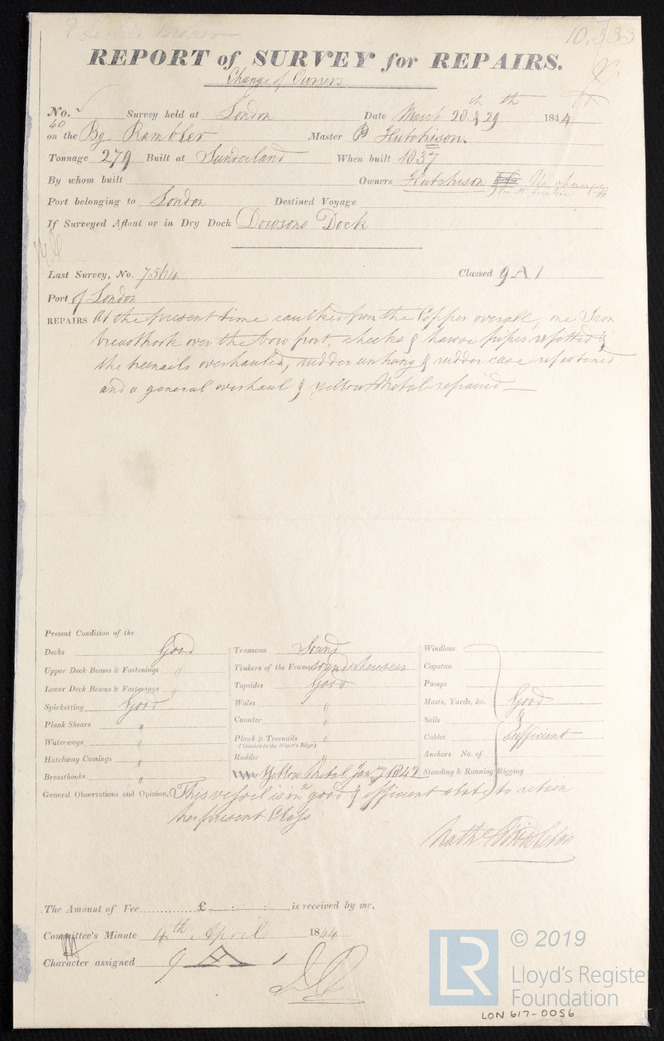 10.333
REPORT of SURVEY for REPAIRS.
Change of Owners
No. 40 Survey held at London Date March 20 & 29th 1844
on the Bg Rambler Master P Hutchison.
Tonnage 279 Built at Sunderland When built 1837
By whom built Owners Hutchison
Port belonging to London Destined Voyage
If Surveyed Afloat or in Dry Dock Dowsons Dock
Last Survey, No. 7564 Classed 9 A 1
Port of London
REPAIRS At the present time caulked from the Copper overall, one Iron
breasthook over the bow port, cheeks & hawse pipes refitted &
the treenails overhauled, rudder unhung & rudder case refastened
and a general overhaul & yellow Metal repaired
Present Condition of the
Decks Good Transoms Sound Windlass
Upper Deck Beams & Fastenings " Timbers of the Frame Capstan
Lower Deck Beams & Fastenings " Topsides Good Pumps
Spirketting Good Wales " Masts, Yards, &c. Good
Plank Shears " Counter " Sails &
Waterways " Plank & Treenails " Cables sufficient
Hatchway Comings " Rudder " Anchors No. of
Breasthooks " Yellow Metal Jany 1842 Standing & Running Rigging
General Observations and Opinion, This vessel is in good & efficient state to retain
her present Class
The Amount of Fee............£ is received by me,
Committee's Minute 4th April 1844
Character assigned 9 A 1
LR © 2019
Lloyd's Register
Foundation
LON 617-0056